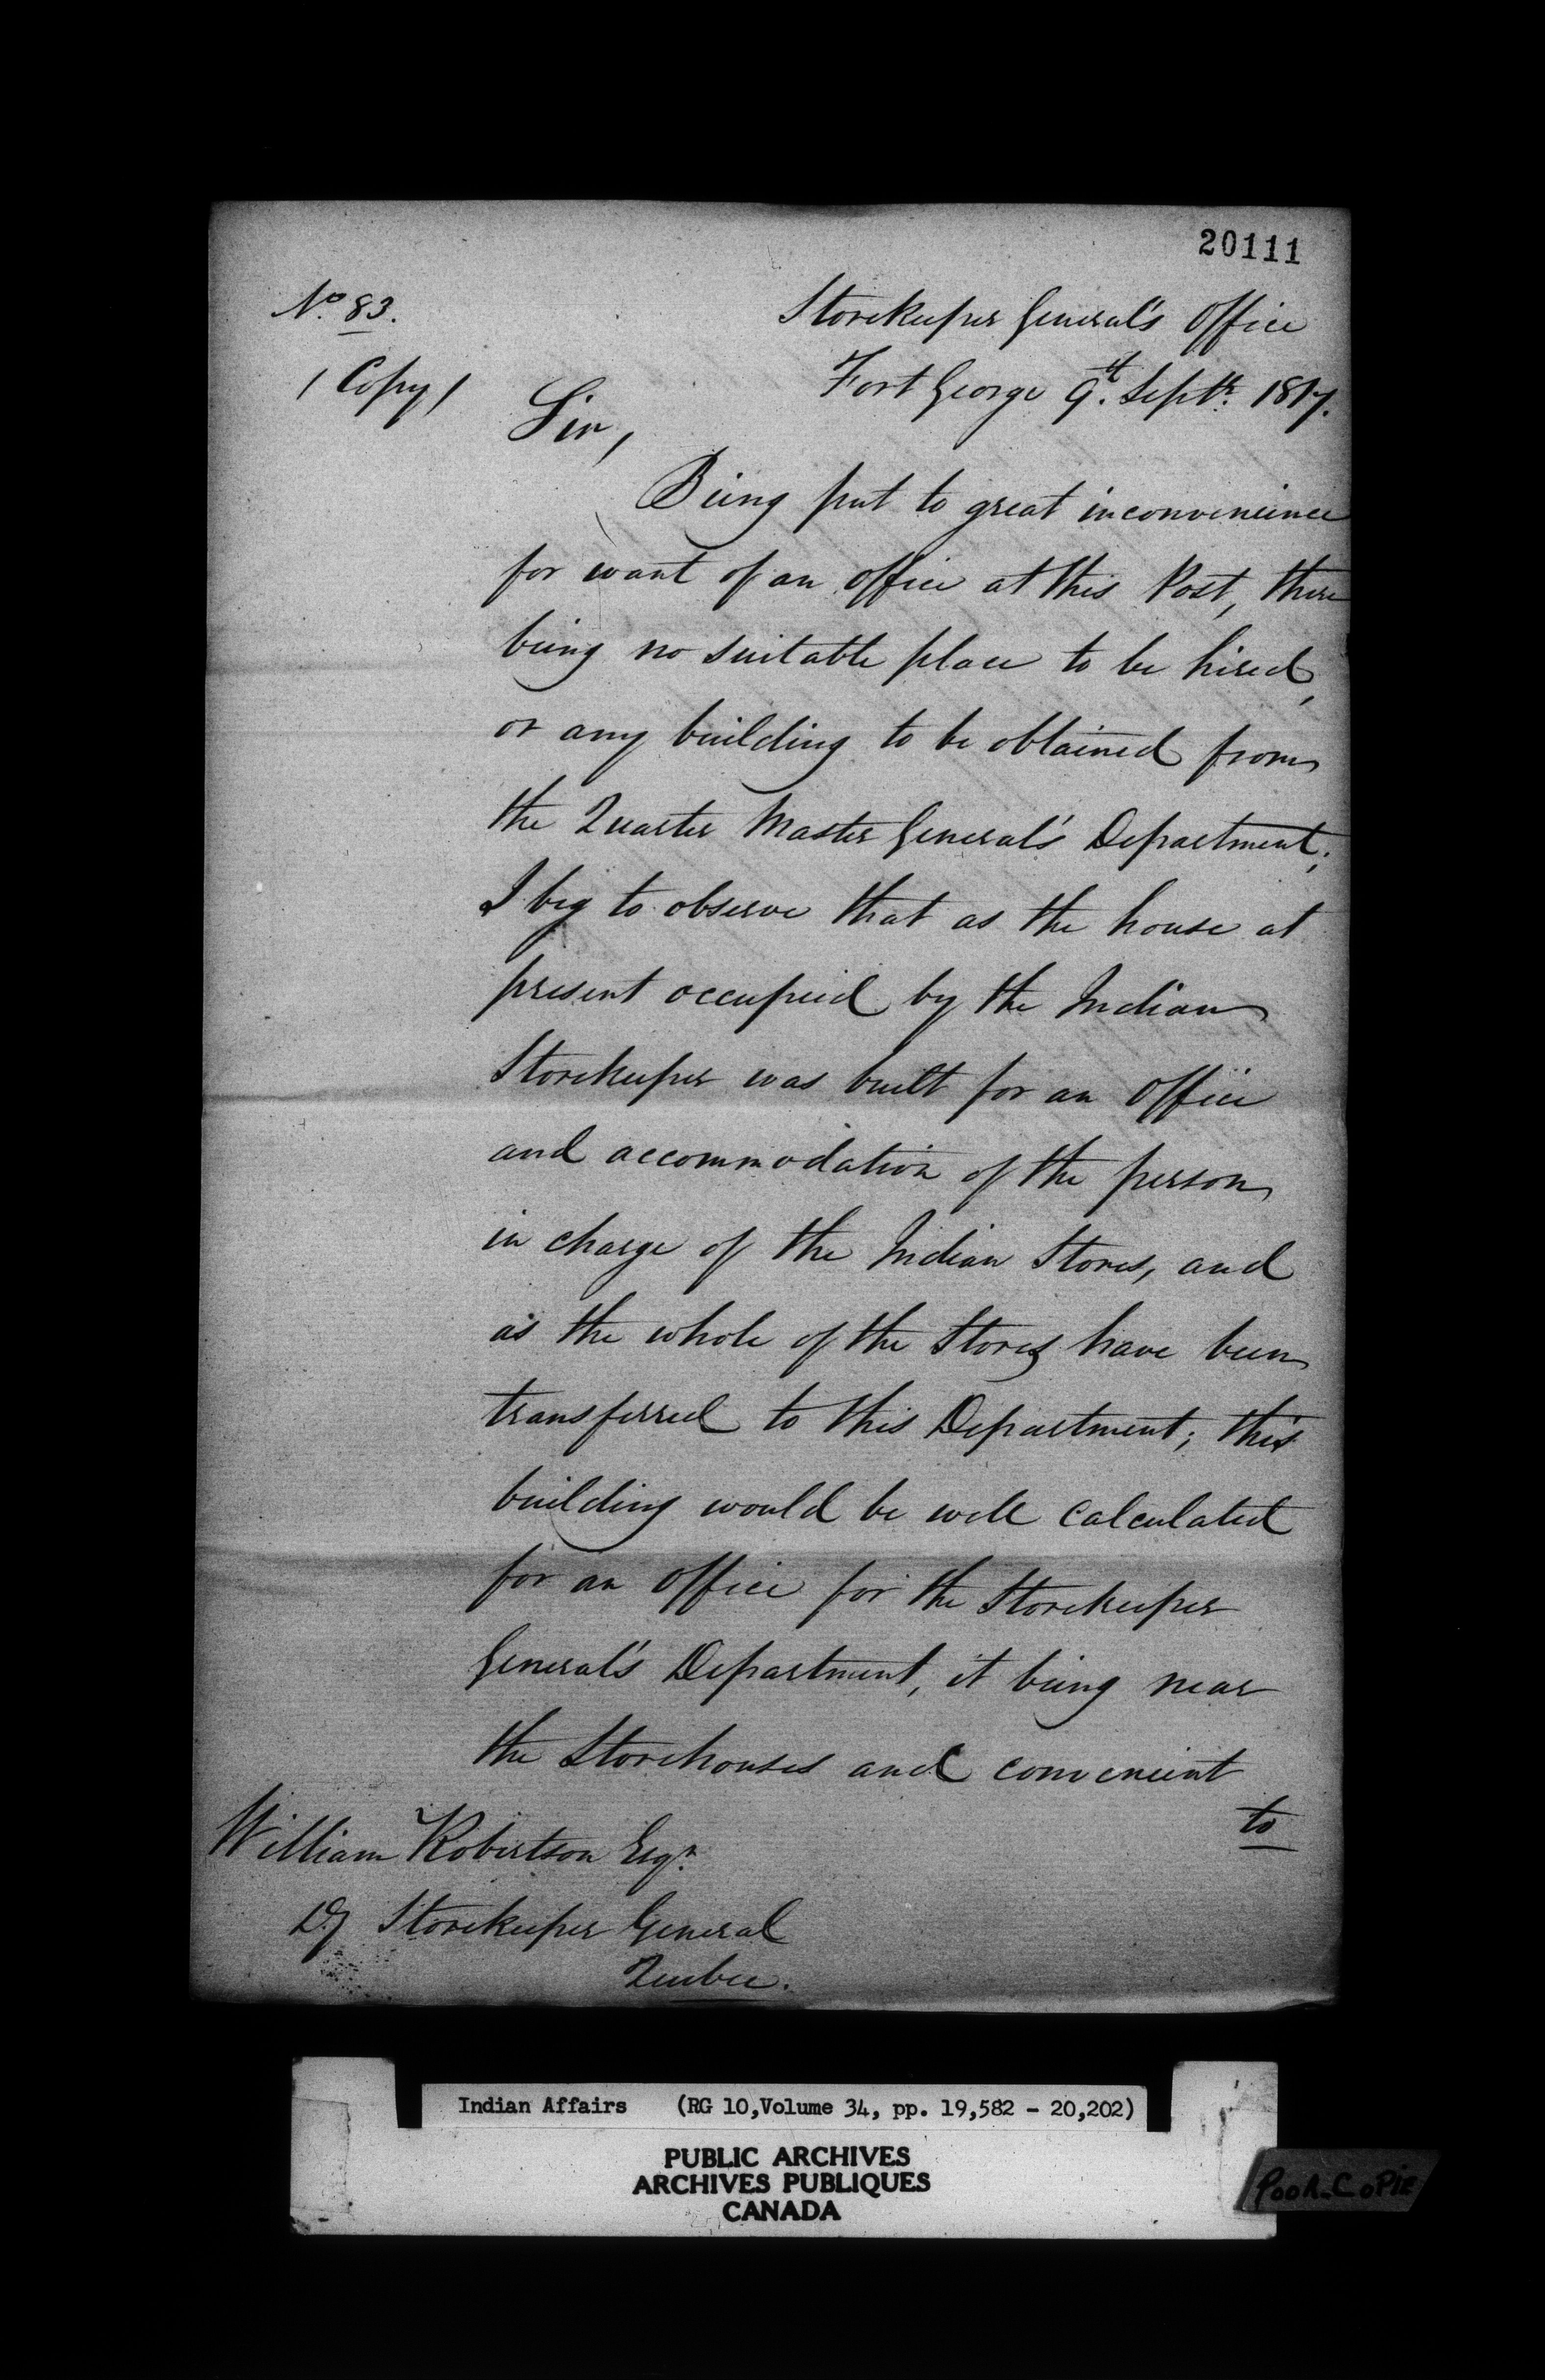 20111
No. 83.
Storekeeper General's Office
(Copy)
Fort George 9th. Septr. 1817.
Sir,
Being put to great inconvenience
for want of an office at this Post, there
being no suitable place to be hired,
or any building to be obtained from
the Quarter Master General's Department;
I beg to observe that as the house at
present occupied by the Indian
Storekeeper was built for an Office
and accommodation of the person
in charge of the Indian Stores, and
as the whole of the Stores have been
transferred to this Department; this
building would be well calculated
for an Office for the Storekeeper
General's Department, it being near
the Storehouses and convenient
to
William Robertson Esqr.
Dy Storekeeper General
Quebec.
Indian Affairs (RG 10, Volume 34, pp. 19,582 - 20,202)
PUBLIC ARCHIVES
ARCHIVES PUBLIQUES
CANADA
POOR COPIE